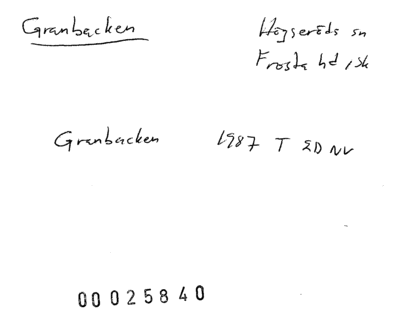 Granbacken Högseröds sn
Frosta hd, Sk
Granbacken 1987 T 2D NV
00025840